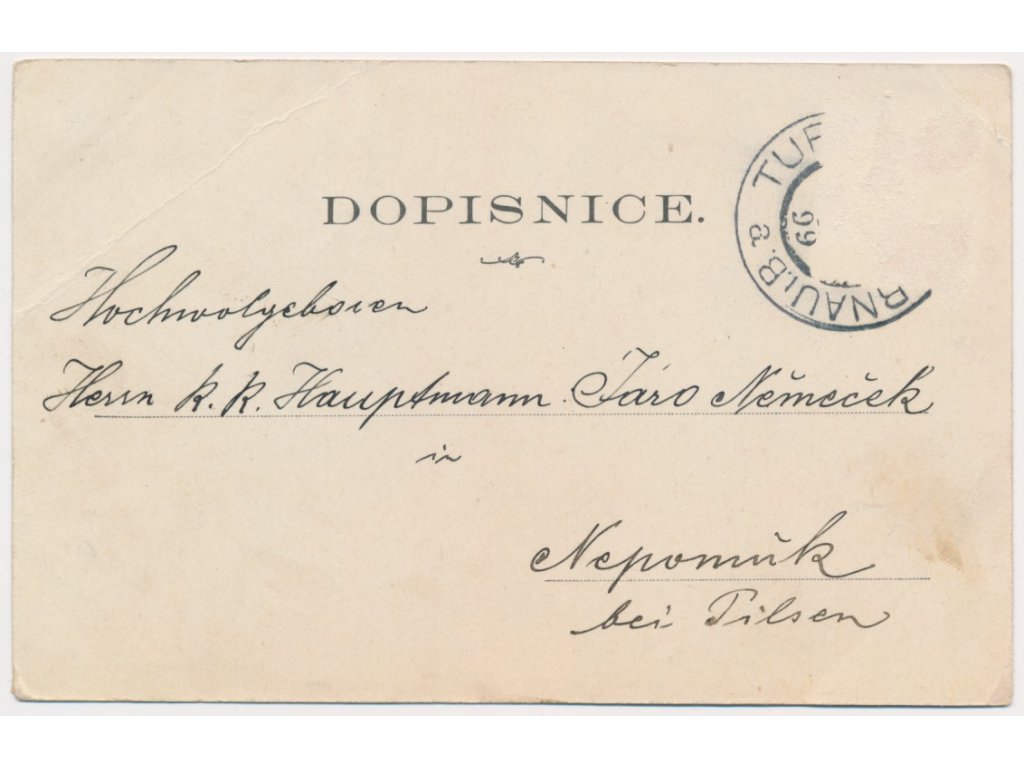 DOPISNICE.
TUR
99
RNAU i. B. a
Hochwolgeboren
Herrn k. k. Hauptmann Jaro Němeček
in
Nepomuk
bei Pilsen